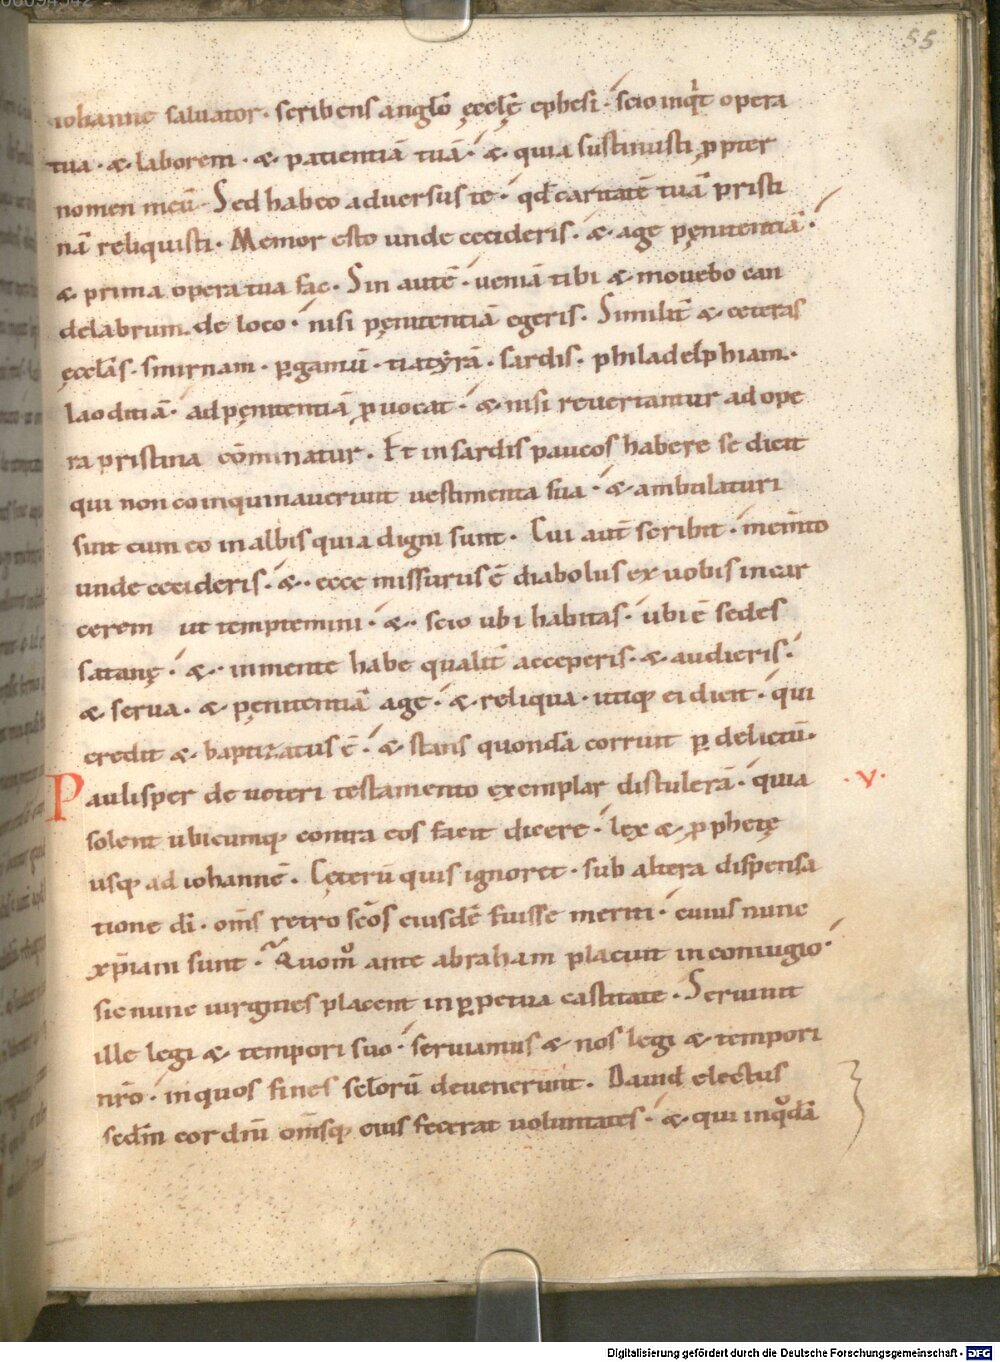 55
iohanne saluator · scribens anglo ęcclę ephesi · scio inqt opera
tua · & laborem · & patientiā tuā · & quia sustinuisti ꝓpter
nomen meū · Sed habeo aduersus te · qd caritatē tuā pristi
nā reliquisti · Memor esto unde cecideris · & age pęnitentiā ·
& prima opera tua fac · Sin autē · ueniā tibi & mouebo can
delabrum de loco · nisi pęnitentiā egeris · Similit & ceteras
ęcclas · smirnam · ꝑgamū · tiatyrā · sardis · philadelphiam ·
laoditiā · ad pęnitentiā ꝓuocat · & nisi reuertantur ad ope
ra pristina cōminatur · Et in sardis paucos habere se dicit
qui non coinquinauerunt uestimenta sua · & ambulaturi
sint cum eo in albis quia digni sunt · Cui aut scribit · memto
unde cecideris · & · ecce missurus ē diabolus ex uobis in car
cerem ut temptemini · & · scio ubi habitas · ubi ē sedes
satanę · & · in mente habe qualit acceperis · & audieris ·
& serua · & pęnitentiā age · & reliqua · utiq; ei dicit · qui
credit & baptizatus ē · & stans quondā corruit ꝑ delictū ·
Paulisper de ueteri testamento exemplar distulerā · quia · v ·
solent ubicumq; contra eos facit dicere · lex & ꝓphetę
usq; ad iohannē · Cęterū quis ignoret · sub altera dispensa
tione dī · oms retro scōs eiusdē fuisse meriti · cuius nunc
xp̄iani sunt · Quom ante abraham placuit in coniugio ·
sic nunc uirgines placent in ꝑpetua castitate · Seruiuit
ille legi & tempori suo · seruiamus & nos legi & tempori
nr̄o · in quos fines sclorū deuenerunt · Dauid electus
sedm cor dn̄i omsq; eius fecerat uoluntates · & qui inqdā
Digitalisierung gefördert durch die Deutsche Forschungsgemeinschaft - DFG